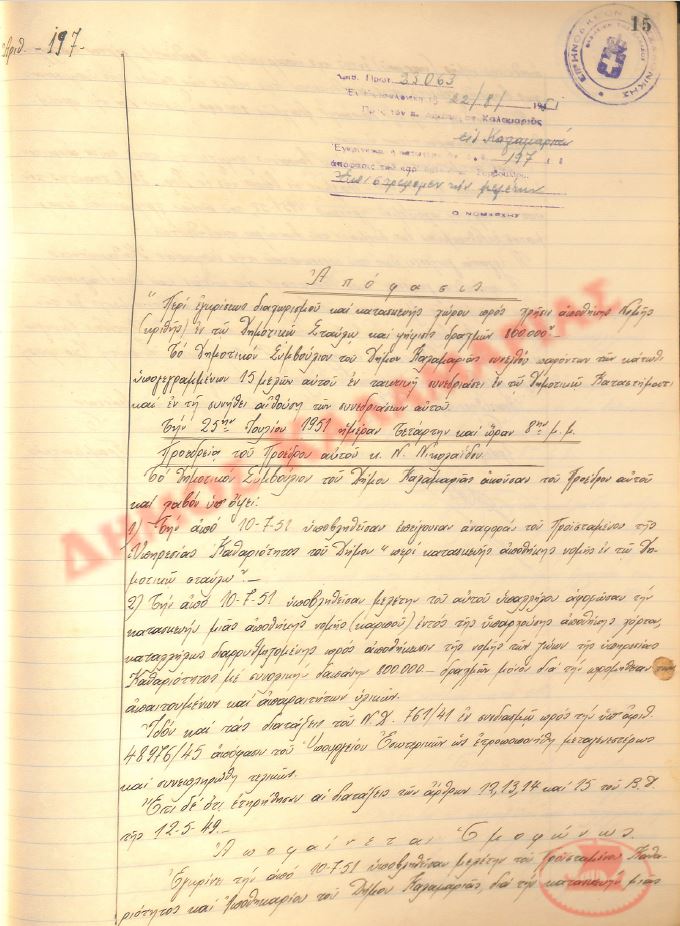 Ἀριθ. 197.
15
ΕΙΡΗΝΟΔΙΚΕΙΟΝ ΘΕΣΣΑΛΟΝΙΚΗΣ
Ἀριθ. Πρωτ. 35063
Ἐν Θεσσαλονίκῃ τῇ 22/8/1951
Πρὸς τὸν κ. Δήμαρχον Καλαμαριᾶς
εἰς Καλαμαριάν
Ἐγκρίνεται ἡ 197
ἀπόφασις τοῦ Συμβουλίου.
Ἐπιστρέφομεν τὴν μελέτην
Ο ΝΟΜΑΡΧΗΣ
Ἀπόφασις
"Περὶ ἐγκρίσεως διαχωρισμοῦ καὶ κατασκευῆς χώρου πρὸς χρῆσιν ἀποθήκης Νομῆς
(κριθῆς) ἐν τῷ Δημοτικῷ Σταύλῳ καὶ ψήφισις δραχμῶν 800.000".-
Τὸ Δημοτικὸν Συμβούλιον τοῦ Δήμου Καλαμαριᾶς συνελθὸν παρόντων τῶν κάτωθι
ὑπογεγραμμένων 15 μελῶν αὐτοῦ ἐν τακτικῇ συνεδριάσει ἐν τῷ Δημοτικῷ Καταστήματι
καὶ ἐν τῇ συνήθει αἰθούσῃ τῶν συνεδριάσεων αὐτοῦ
Τὴν 25ην Ἰουλίου 1951 ἡμέραν Τετάρτην καὶ ὥραν 8ην μ.μ.
Προεδρείᾳ τοῦ Προέδρου αὐτοῦ κ. Ν. Νικολαΐδου.
Τὸ Δημοτικὸν Συμβούλιον τοῦ Δήμου Καλαμαριᾶς ἀκοῦσαν τοῦ Προέδρου αὐτοῦ
καὶ λαβὸν ὑπ' ὄψει:
1) Τὴν ἀπὸ 10-7-51 ὑποβληθεῖσαν ἐπείγουσαν ἀναφορὰν τοῦ Προϊσταμένου τῆς
Ὑπηρεσίας Καθαριότητος τοῦ Δήμου "περὶ κατασκευῆς ἀποθήκης νομῆς ἐν τῷ Δη-
μοτικῷ σταύλῳ".-
2) Τὴν ἀπὸ 10-7-51 ὑποβληθεῖσαν μελέτην τοῦ αὐτοῦ ὑπαλλήλου ἀφορῶσαν τὴν
κατασκευὴν μιᾶς ἀποθήκης νομῆς (καρποῦ) ἐντὸς τῆς ὑπαρχούσης ἀποθήκης χόρτου,
καταλλήλως διαρρυθμιζομένης πρὸς ἀποθήκευσιν τῆς νομῆς τῶν ζώων τῆς ὑπηρεσίας
Καθαριότητος μὲ συνολικὴν δαπάνην 800.000.- δραχμῶν μόνον διὰ τὴν προμήθειαν τῶν
ἀπαιτουμένων καὶ ἀπαραιτήτων ὑλικῶν.
Ἰδὸν καὶ τὰς διατάξεις τοῦ Ν.Δ. 761/41 ἐν συνδυασμῷ πρὸς τὴν ὑπ' ἀριθ.
48976/45 ἀπόφασιν τοῦ Ὑπουργείου Ἐσωτερικῶν ὡς ἐτροποποιήθη μεταγενεστέρως
καὶ συνεπληρώθη τελικῶς.
Ἔτι δὲ ὅτι ἐτηρήθησαν αἱ διατάξεις τῶν ἄρθρων 12, 13, 14 καὶ 15 τοῦ Β.Δ.
τῆς 12-5-49.-
Ἀποφαίνεται Ὁμοφώνως.
Ἐγκρίνει τὴν ἀπὸ 10-7-51 ὑποβληθεῖσαν μελέτην τοῦ Προϊσταμένου Καθα-
ριότητος καὶ Ἀποθηκαρίου τοῦ Δήμου Καλαμαριᾶς, διὰ τὴν κατασκευὴν μιᾶς
ΔΗΜΟΣ ΚΑΛΑΜΑΡΙΑΣ